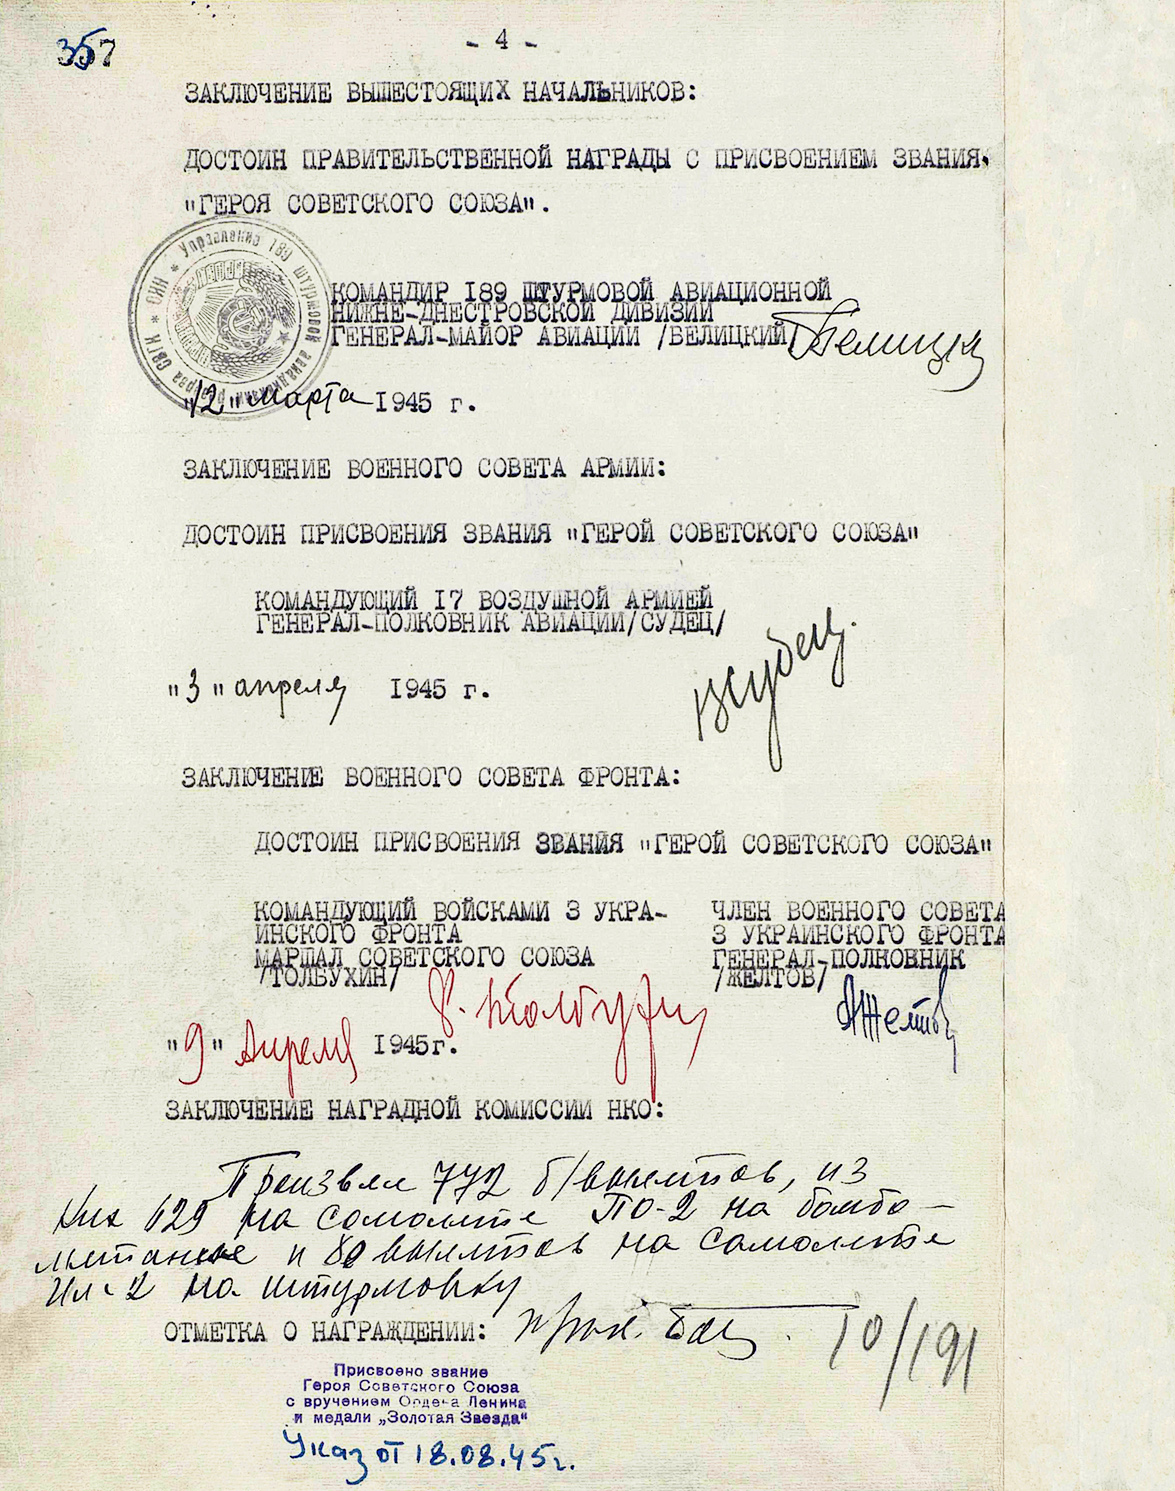 357
- 4 -
ЗАКЛЮЧЕНИЕ ВЫШЕСТОЯЩИХ НАЧАЛЬНИКОВ:
ДОСТОИН ПРАВИТЕЛЬСТВЕННОЙ НАГРАДЫ С ПРИСВОЕНИЕМ ЗВАНИЯ
"ГЕРОЯ СОВЕТСКОГО СОЮЗА".
Управление 189 штурмовой авиационной
КОМАНДИР 189 ШТУРМОВОЙ АВИАЦИОННОЙ
НИЖНЕ-ДНЕСТРОВСКОЙ ДИВИЗИИ
ГЕНЕРАЛ-МАЙОР АВИАЦИИ /БЕЛИЦКИЙ/
"12" марта 1945 г.
ЗАКЛЮЧЕНИЕ ВОЕННОГО СОВЕТА АРМИИ:
ДОСТОИН ПРИСВОЕНИЯ ЗВАНИЯ "ГЕРОЙ СОВЕТСКОГО СОЮЗА"
КОМАНДУЮЩИЙ 17 ВОЗДУШНОЙ АРМИЕЙ
ГЕНЕРАЛ-ПОЛКОВНИК АВИАЦИИ/СУДЕЦ/
ВСудец.
"3" апреля 1945 г.
ЗАКЛЮЧЕНИЕ ВОЕННОГО СОВЕТА ФРОНТА:
ДОСТОИН ПРИСВОЕНИЯ ЗВАНИЯ "ГЕРОЙ СОВЕТСКОГО СОЮЗА"
КОМАНДУЮЩИЙ ВОЙСКАМИ 3 УКРА-
ИНСКОГО ФРОНТА
МАРШАЛ СОВЕТСКОГО СОЮЗА
/ТОЛБУХИН/
Ф. Толбухин
ЧЛЕН ВОЕННОГО СОВЕТА
3 УКРАИНСКОГО ФРОНТА
ГЕНЕРАЛ-ПОЛКОВНИК
/ЖЕЛТОВ/
АЖелтов
"9" Апреля 1945г.
ЗАКЛЮЧЕНИЕ НАГРАДНОЙ КОМИССИИ НКО:
Произвел 772 б/вылетов, из
них 629 на самолете ПО-2 на бомбо-
метание и вылетов на самолете
Ил-2 на штурмовку
ОТМЕТКА О НАГРАЖДЕНИИ:
10/191
Присвоено звание
Героя Советского Союза
с вручением Ордена Ленина
и медали „Золотая Звезда"
Указ от 18.08.45г.